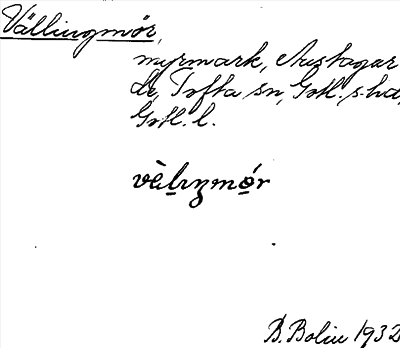 Vällingmör,
myrmark, Austagar
de, Tofta sn, Gotl. s. hd,
Gotl. l.
vèlıŋmǿr
B. Bolin 1932